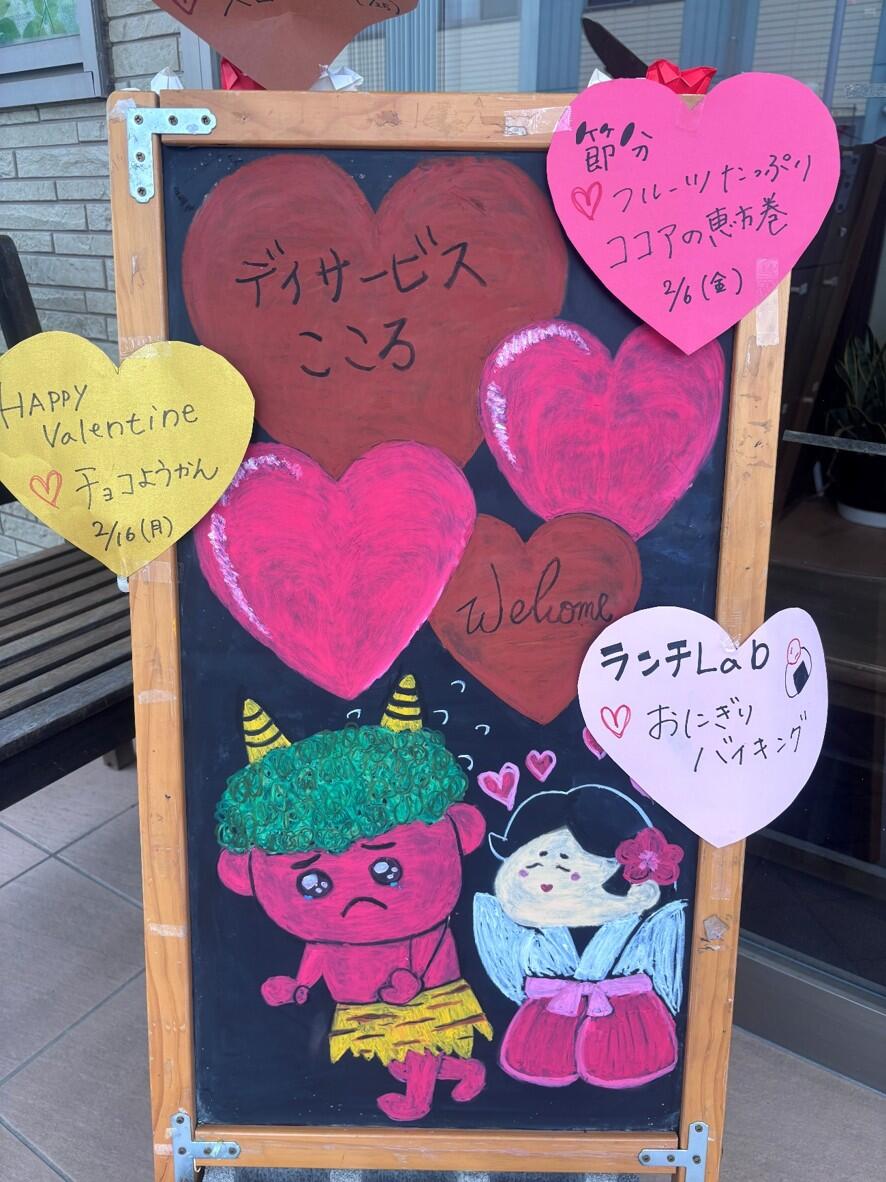 節分
フルーツたっぷり
ココアの恵方巻
2/6(金)
デイサービス
こころ
HAPPY
Valentine
チョコようかん
2/16(月)
Welcome
ランチLab
おにぎり
バイキング